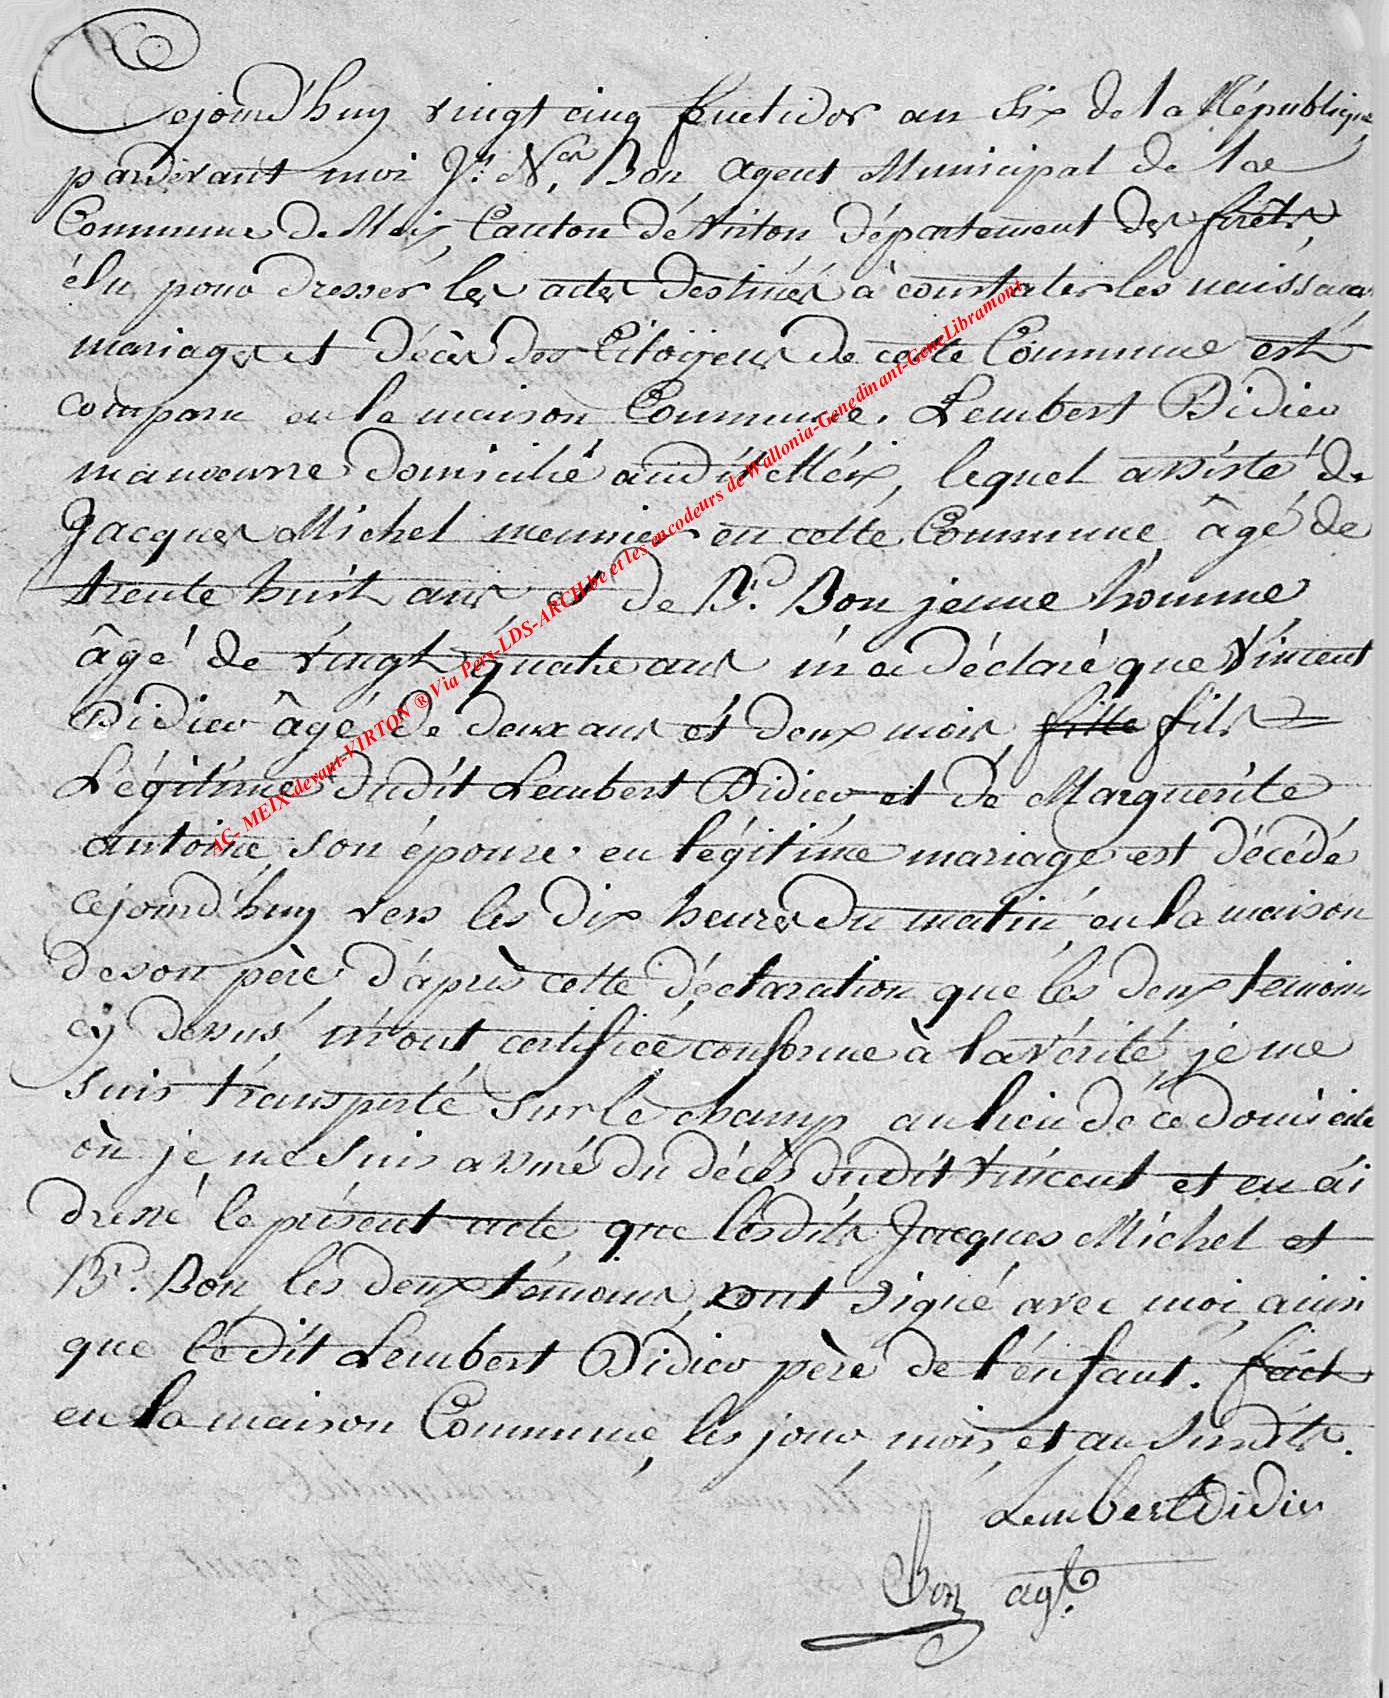 Cejourd'huy vingt cinq fructidor an Six de la République
pardevant moi J. N.as Bon agent Municipal de la
Commune de Meix, Canton de Virton département des forêts,
élu pour dresser les actes destinés à constater les naissances
mariages et décès des Citoijens de cette Commune est
comparu en la maison Commune, Lembert Didier
manoeuvre domicilié audit Meix, lequel assisté de
Jacques Michel meunier en cette Commune âgé de
trente huit ans et de B.d Bon jeune homme
âgé de vingt quatre ans m'a déclaré que Vincent
Didier âgé de deux ans et deux mois fille fils
Légitime dudit Lembert Didier et de Marguerite
antoine son épouse en légitime mariage est décédé
cejourd'huy vers les dix heures du matin en la maison
de son père d'après cette déclaration que les deux temoins
cy dessus m'ont certifiée conforme à la vérité, je me
suis transporté sur le champ au lieu de ce domicile
où je me suis assuré du décès dudit Vincent et en ai
dressé le présent acte que lesdits Jacques Michel et
B.d Bon les deux témoins, ont signé avec moi ainsi
que ledit Lembert Didier père de l'énfant. fait
en la maison Commune, les jour, mois, et an susdits.
Lembert Didier
Bon agt.
AC- MEIX-devant-VIRTON ® Via Pers-LDS-ARCH.be et les encodeurs de Wallonia-Genedinant-GeneLibramont